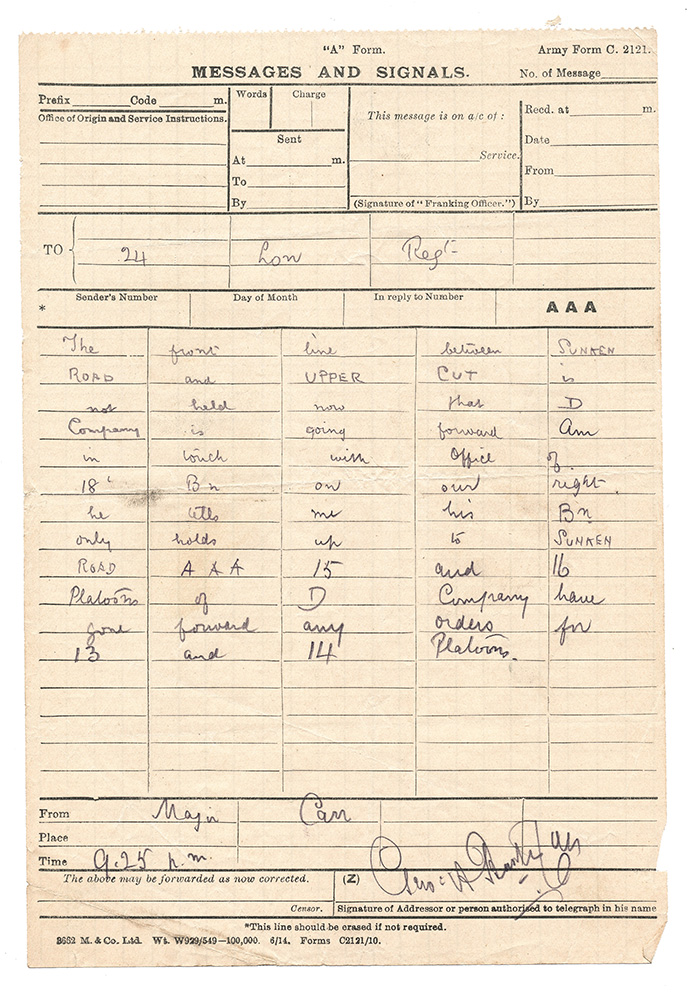 "A" Form. Army Form C. 2121.
MESSAGES AND SIGNALS. No. of Message
Prefix Code m. Words Charge This message is on a/c of : Recd. at m.
Office of Origin and Service Instructions. Sent Date
At m. Service. From
To
By (Signature of "Franking Officer.") By
TO 24 Lon Regt
Sender's Number Day of Month In reply to Number AAA
*
The front line between SUNKEN
ROAD and UPPER CUT is
not held now that D
Company is going forward Am
in touch with Office of
18 Bn on our right.
he tells me his Bn
only holds up to SUNKEN
ROAD AAA 15 and 16
Platoons of D Company have
gone forward any orders for
13 and 14 Platoons.
From Major Carr
Place
Time 9.25 p.m.
The above may be forwarded as now corrected. (Z)
Censor. Signature of Addressor or person authorised to telegraph in his name
*This line should be erased if not required.
3662 M. & Co. Ltd. Wt. W929/549—100,000. 6/14. Forms C2121/10.